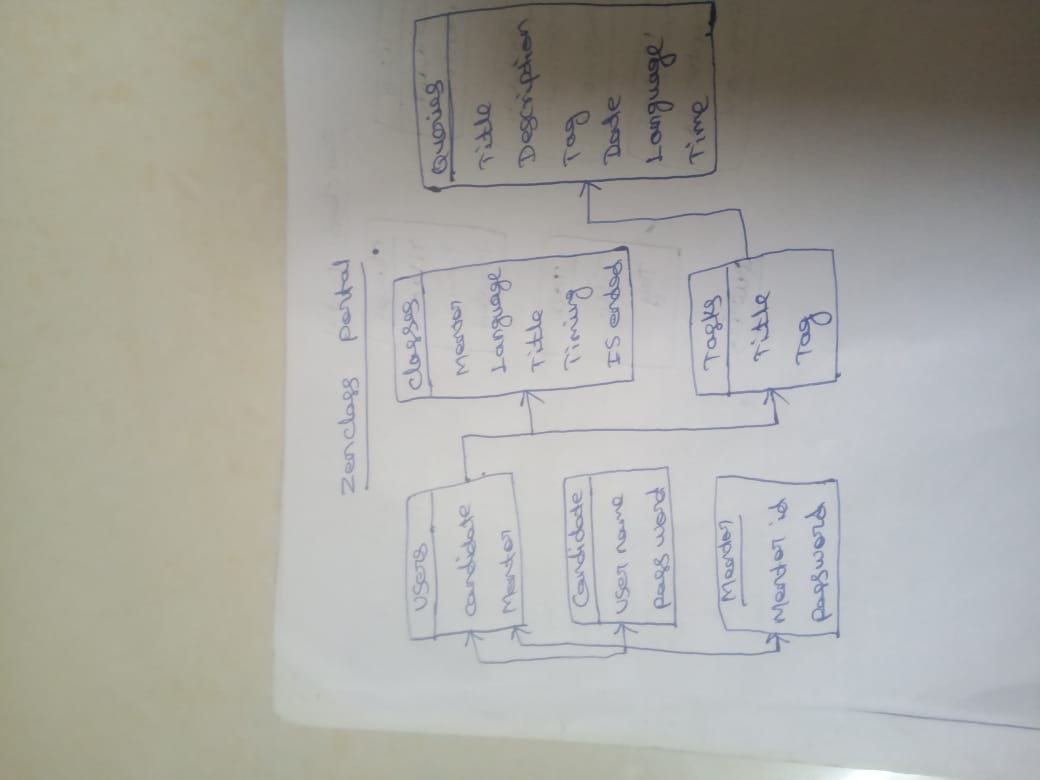 Zenclass portal
Users
Candidate
Mentor
Candidate
User name
password
Mentor
Mentor id
password
Classes
Mentor
Language
Title
Timing
IS ended
Tasks
Title
Tag
Queries
Title
Description
Tag
Date
Language
Time